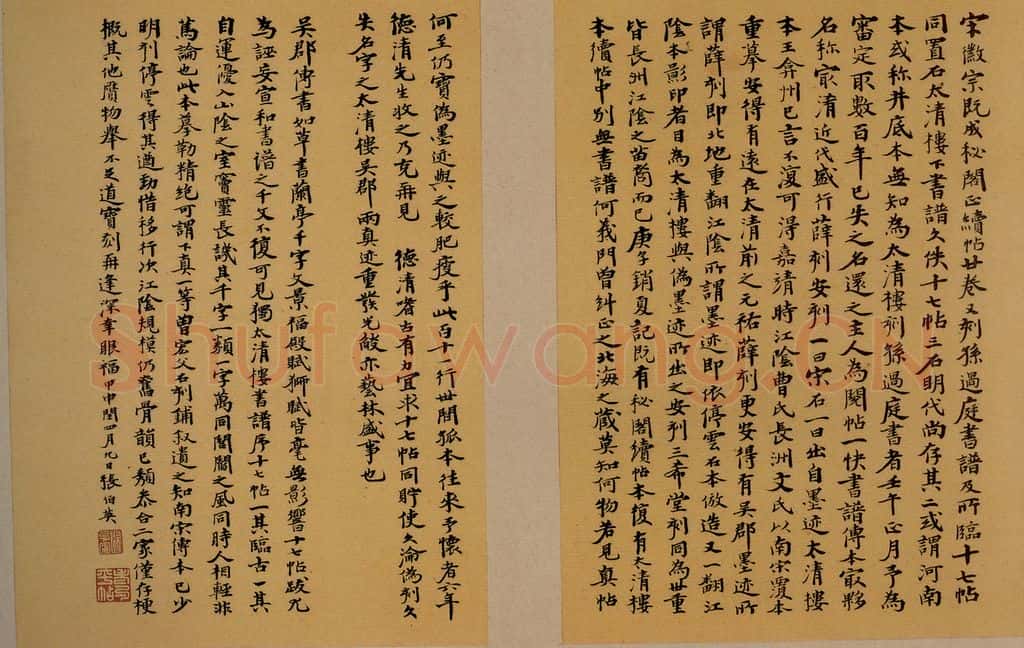 宋徽宗既成秘閣正續帖廿卷又刻孫過庭書譜及所臨十七帖
同置石太清樓下書譜久佚十七帖三石明代尚存其二或謂河南
本或称井底本無知為太清樓刻孫過庭書者壬午正月予為
審定取數百年已失之名還之主人為閣帖一快書譜傳本寂夥
名称家淆近代盛行薛刻安刻一曰宋石一曰出自墨迹太清樓
本王弇州已言不復可得嘉靖時江陰曹氏長洲文氏以南宋覆本
重摹安得有遠在太清前之元祐薛刻更安得有吳郡墨迹所
謂薛刻即北地重翻江陰所謂墨迹即依停雲石本倣造又一翻江
陰本影印者目為太清樓與偽墨迹所出之安刻三希堂刻同為世重
皆長洲江陰之苗裔而已庚子銷夏記既有秘閣續帖本復有太清樓
本續帖中別無書譜何義門曾糾正之北海之藏莫知何物若見真帖
何至仍寶偽墨迹與之較肥瘦乎此百十行世間孤本往來予懷者六年
德清先生收之乃克再見 德清嗜古有力宜求十七帖同貯使久淪偽刻久
失名字之太清樓吳郡兩真迹重發光燄亦藝林盛事也
吳郡傳書如草書蘭亭千字文景福殿賦獅賦皆毫無影響十七帖跋尤
為誣妄宣和書譜之千文不復可見獨太清樓書譜序十七帖一其臨古一其
自運優入山陰之室竇靈長譏其千字一類一字萬同閭閻之風同時人相輕非
篤論也此本摹勒精絕可謂下真一等曾宏父石刻鋪敘遺之知南宋傳本已少
明刊停雲得其遒勁惜移行次江陰規模仍舊骨韻已頹泰合二家僅存梗
概其他贗物舉不足道寶刻再逢深幸眼福甲申閏四月九日張伯英
Shufawang.CN